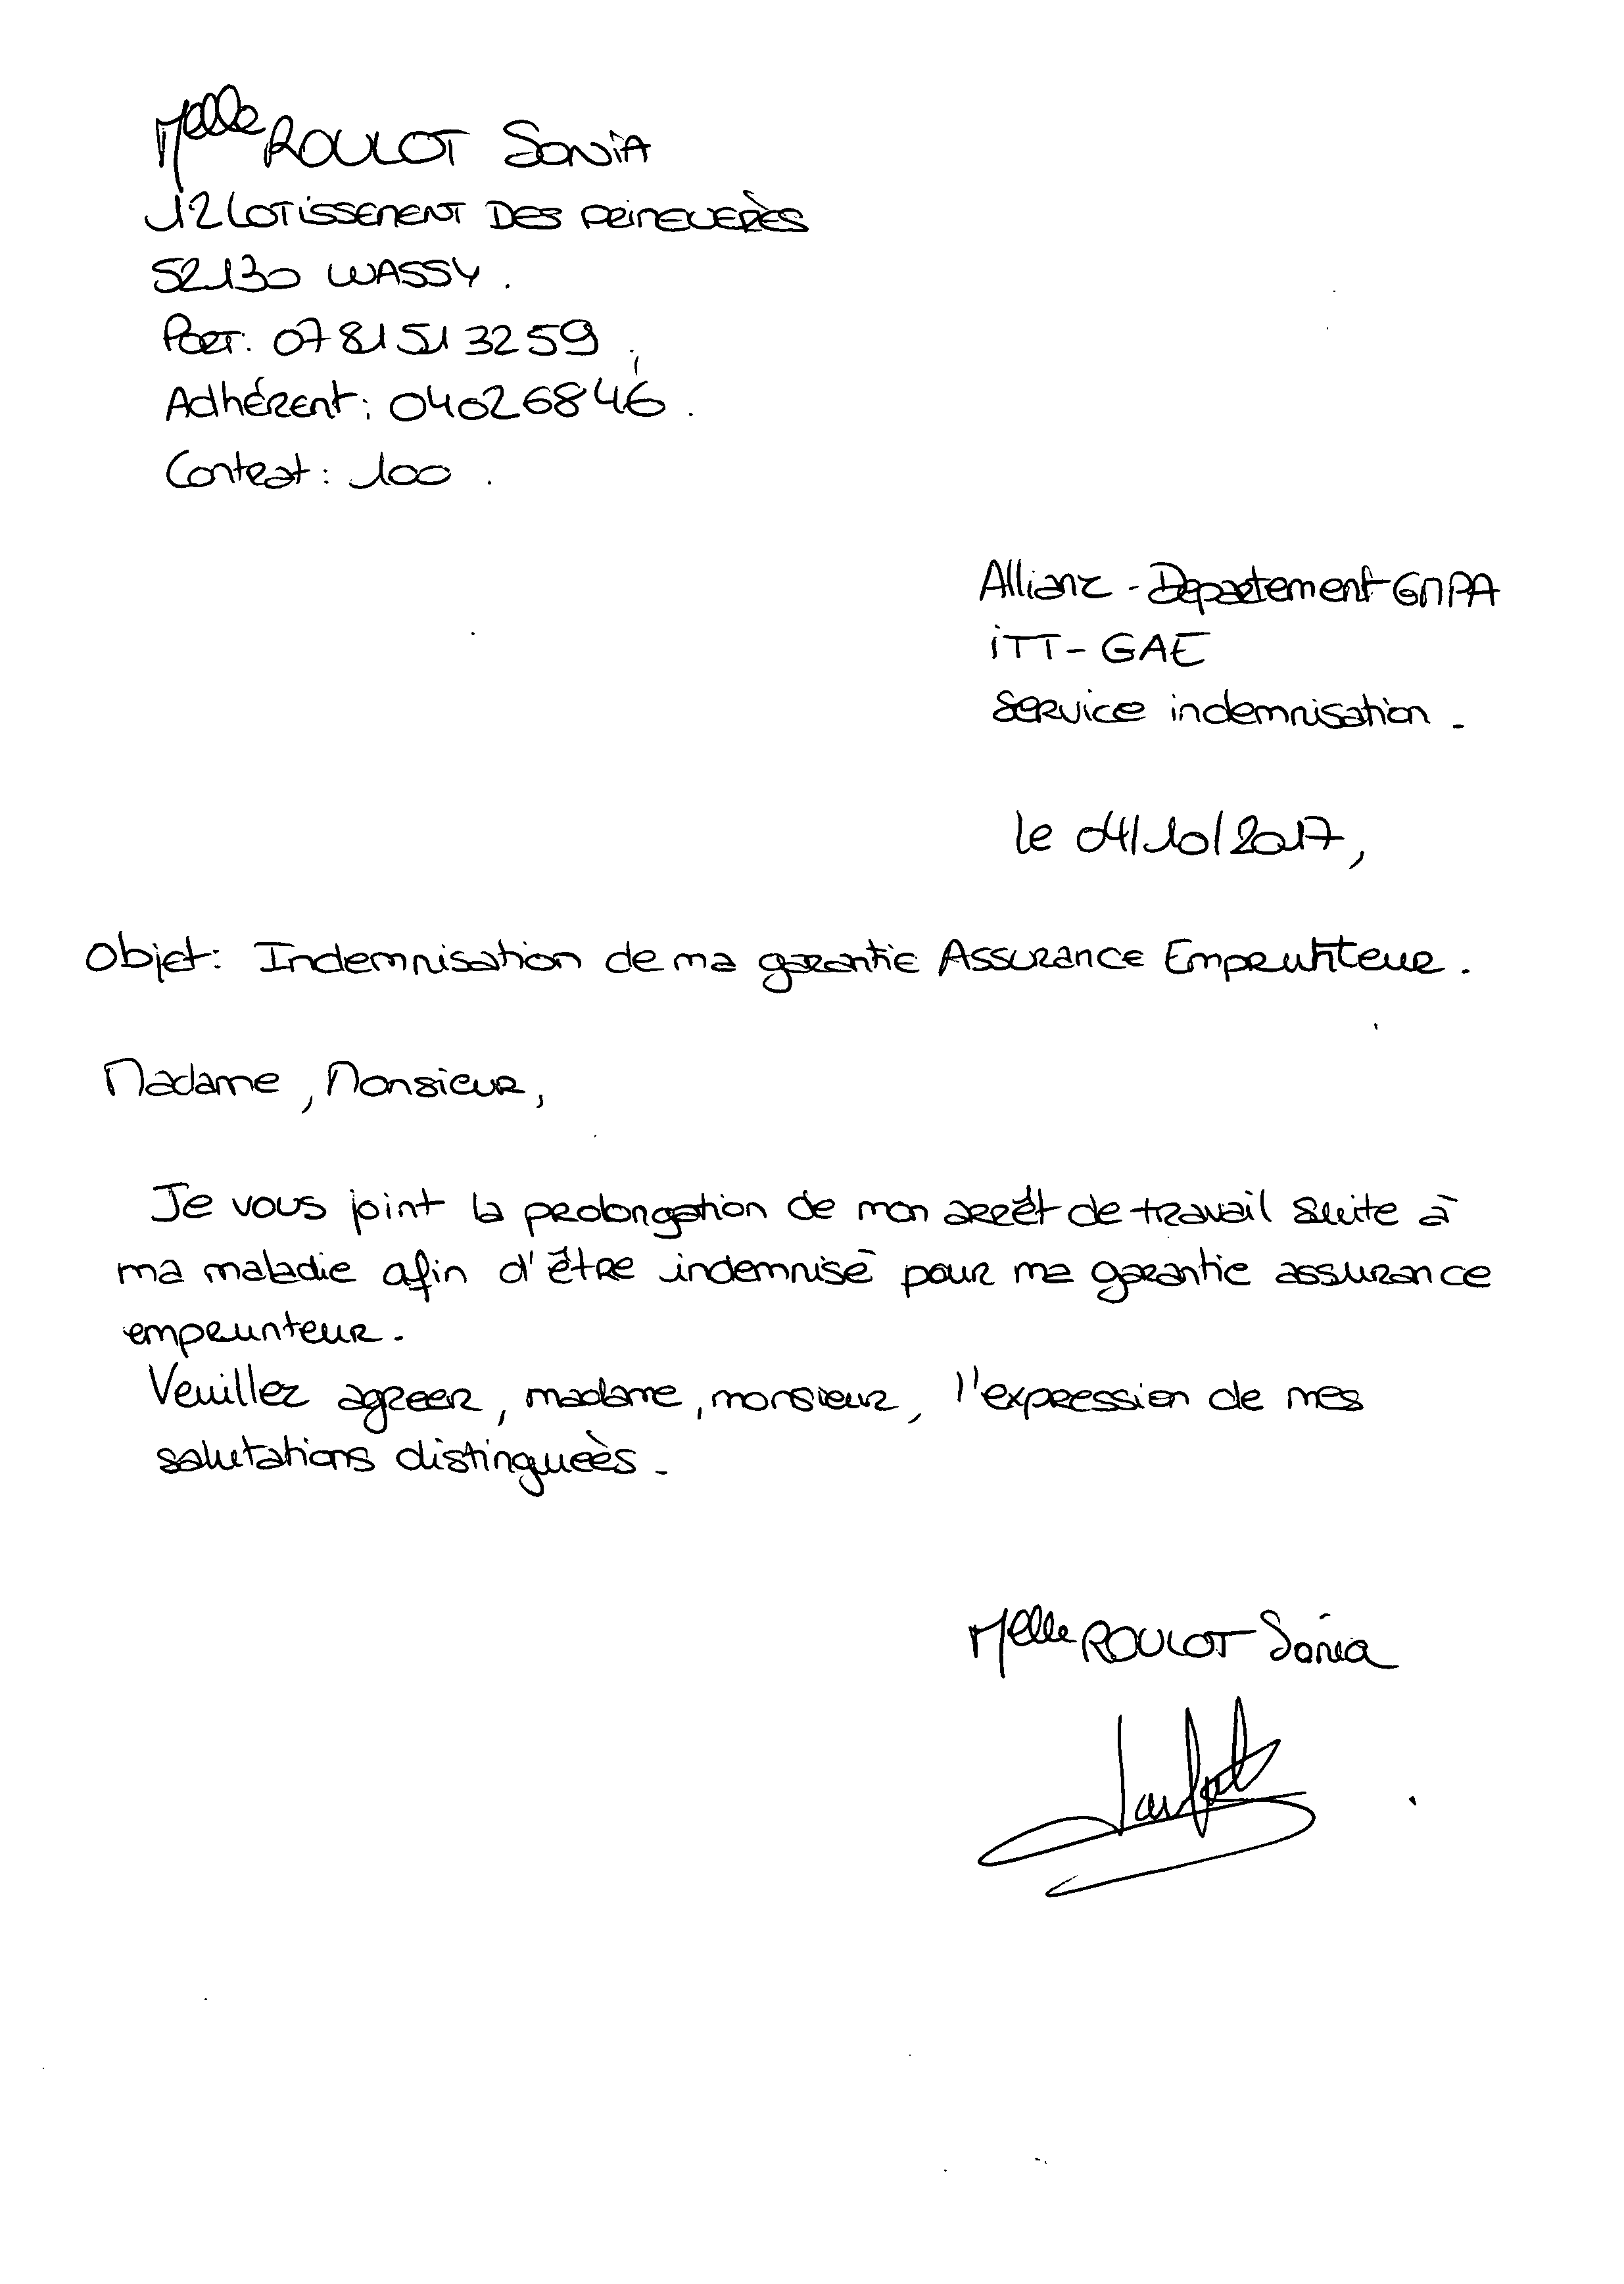 Melle ROULOT SONIA
12 LOTISSEMENT DES PRIMEVERÈS
52130 WASSY.
PORT. 0781513259.
Adhérent: 04026846.
Contrat: 100.
Allianz - Departement GMPA
ITT- GAE
Service indemnisation.
le 04/10/2017,
Objet: Indemnisation de ma garantie Assurance Emprunteur.
Madame, Monsieur,
Je vous joint la prolongation de mon arrêt de travail suite à
ma maladie afin d'être indemnisé pour ma garantie assurance
emprunteur.
Veuillez agreer, madame, monsieur, l'expression de mes
salutations distingueès.
Melle ROULOT Sonia